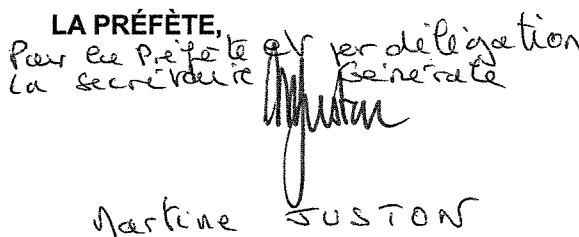 LA PRÉFÈTE,
Pour la Préfète et par délégation
La secrétaire Générale
Martine JUSTON